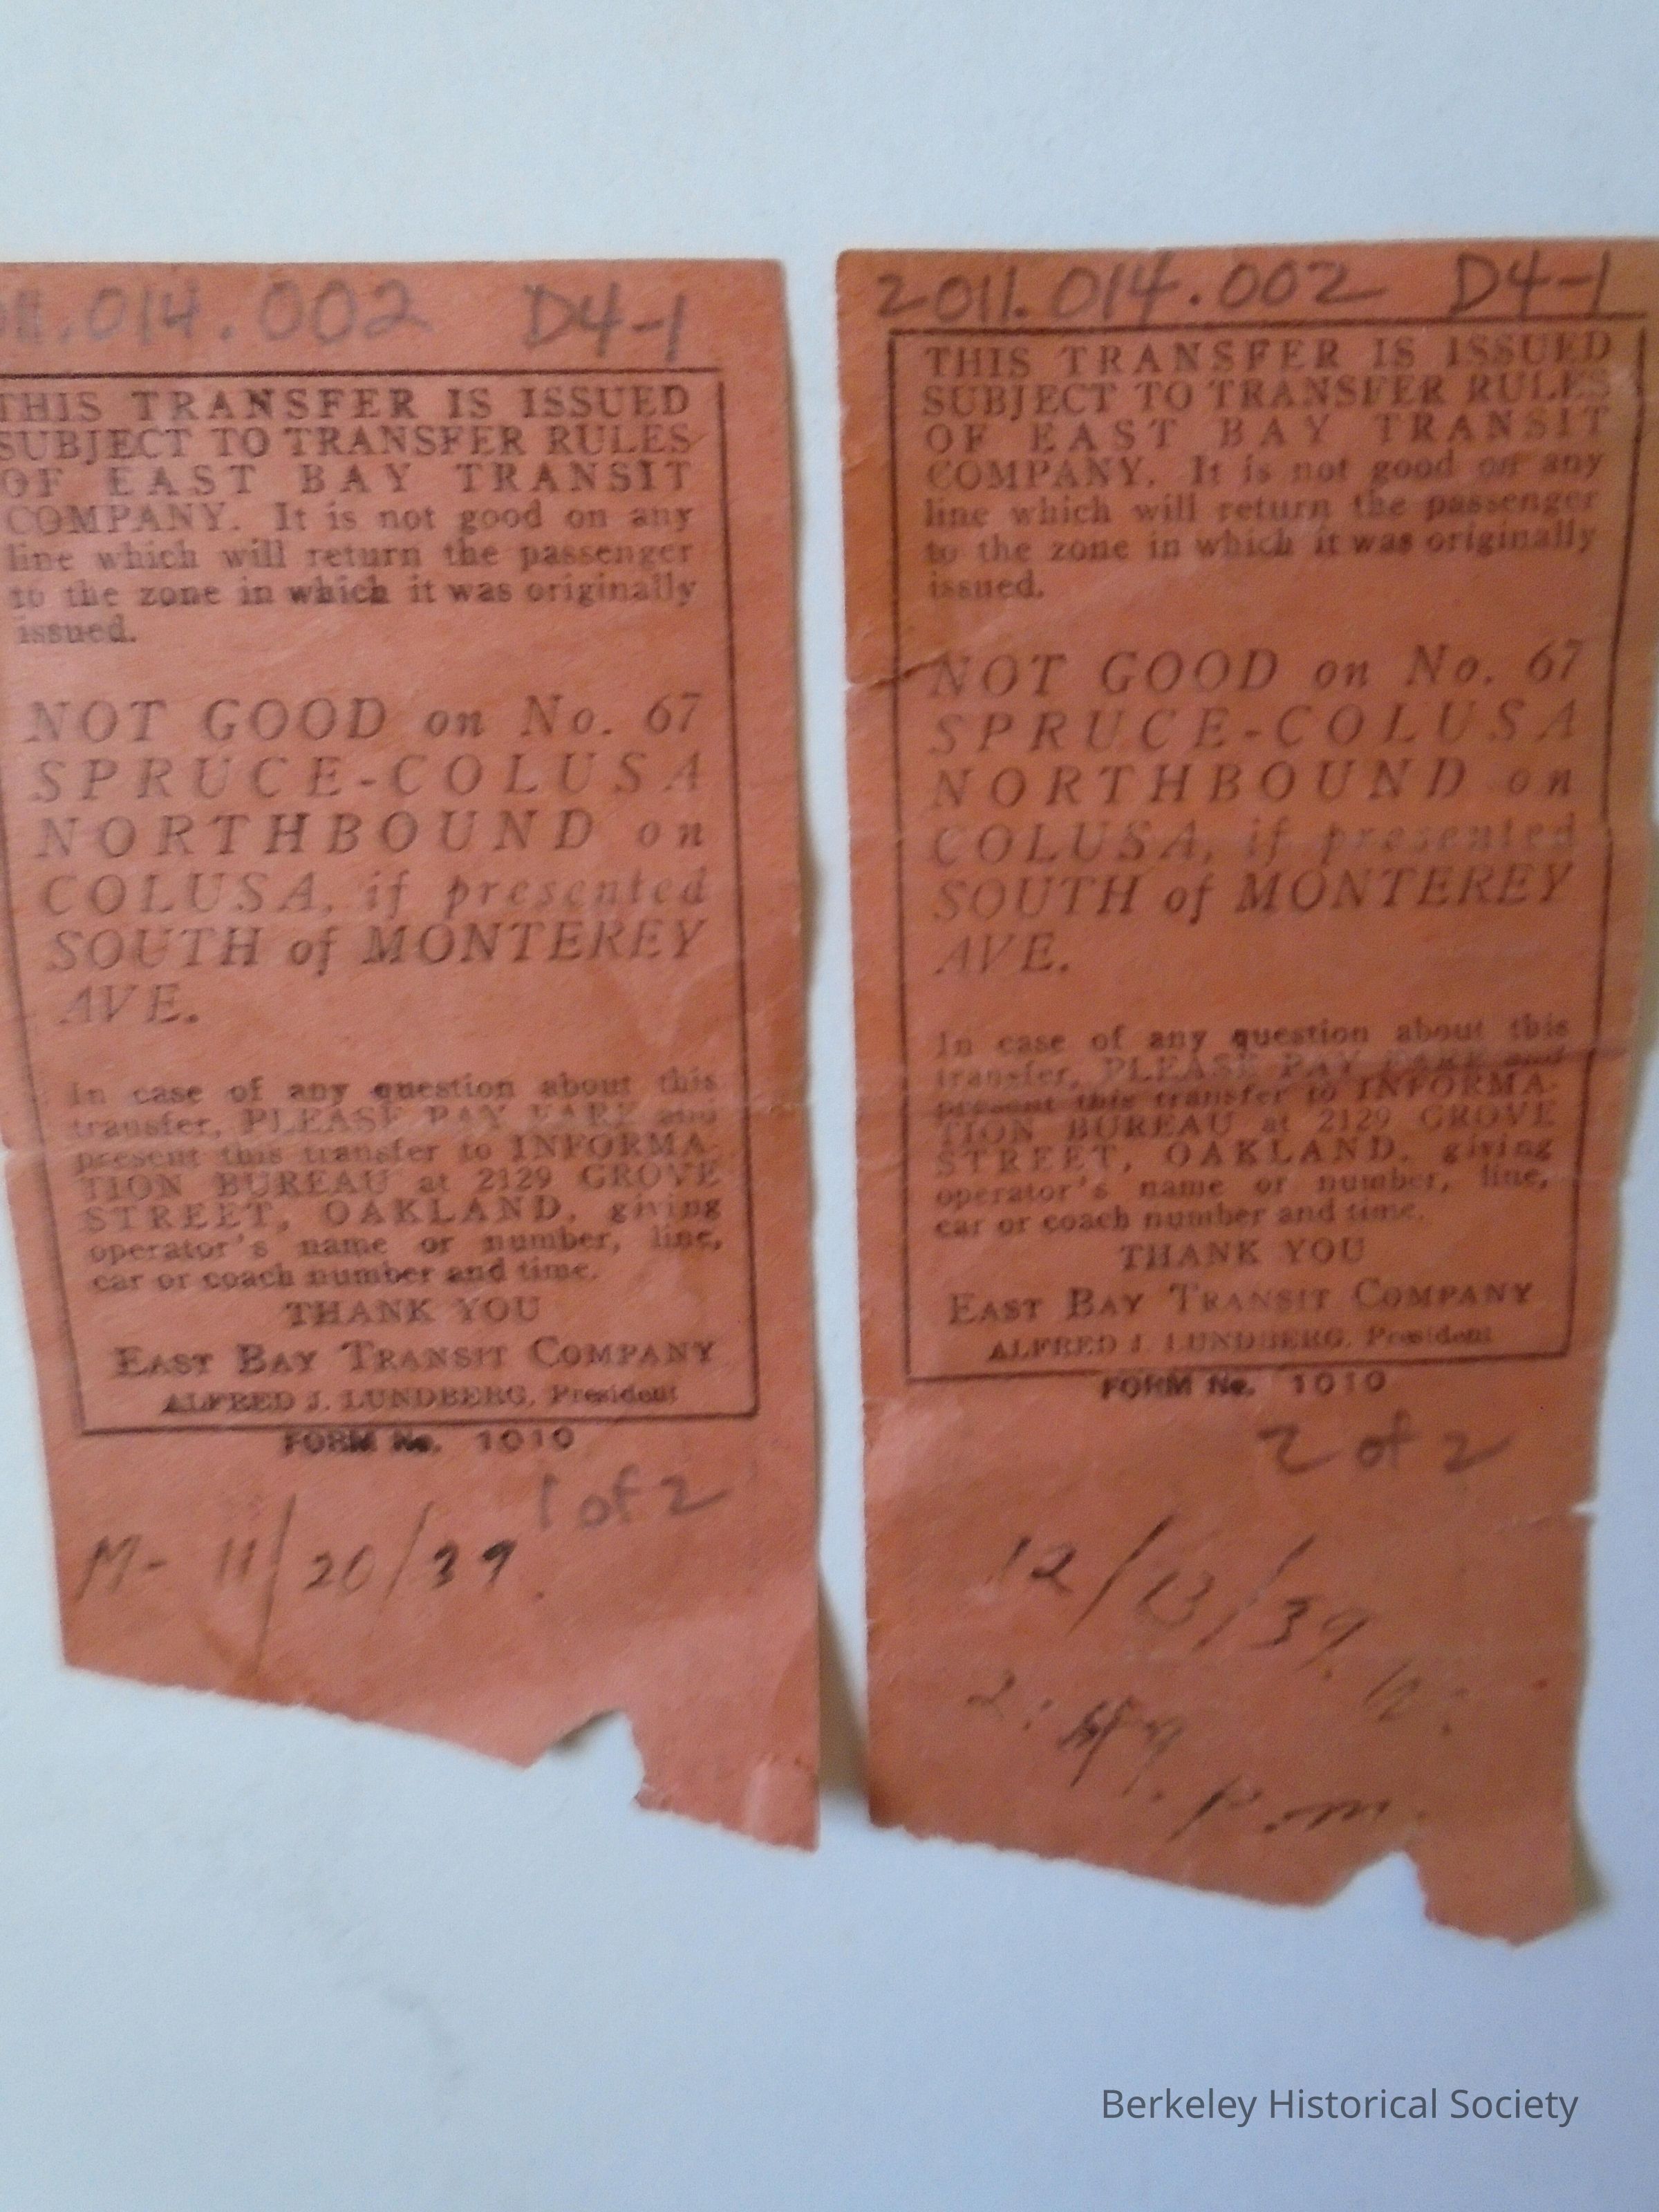 .014.002 D4-1
THIS TRANSFER IS ISSUED
SUBJECT TO TRANSFER RULES
OF EAST BAY TRANSIT
COMPANY. It is not good on any
line which will return the passenger
to the zone in which it was originally
issued.
NOT GOOD on No. 67
SPRUCE-COLUSA
NORTHBOUND on
COLUSA, if presented
SOUTH of MONTEREY
AVE.
In case of any question about this
transfer, PLEASE PAY FARE and
present this transfer to INFORMA-
TION BUREAU at 2129 GROVE
STREET, OAKLAND, giving
operator's name or number, line,
car or coach number and time.
THANK YOU
EAST BAY TRANSIT COMPANY
ALFRED J. LUNDBERG, President
FORM No. 1010
1 of 2
M- 11/20/39.
2011.014.002 D4-1
THIS TRANSFER IS ISSUED
SUBJECT TO TRANSFER RULES
OF EAST BAY TRANSIT
COMPANY. It is not good on any
line which will return the passenger
to the zone in which it was originally
issued.
NOT GOOD on No. 67
SPRUCE-COLUSA
NORTHBOUND on
COLUSA, if presented
SOUTH of MONTEREY
AVE.
In case of any question about this
transfer, PLEASE PAY FARE and
present this transfer to INFORMA-
TION BUREAU at 2129 GROVE
STREET, OAKLAND, giving
operator's name or number, line,
car or coach number and time.
THANK YOU
EAST BAY TRANSIT COMPANY
ALFRED J. LUNDBERG, President
FORM No. 1010
2 of 2
12/13/39.
p.m.
Berkeley Historical Society